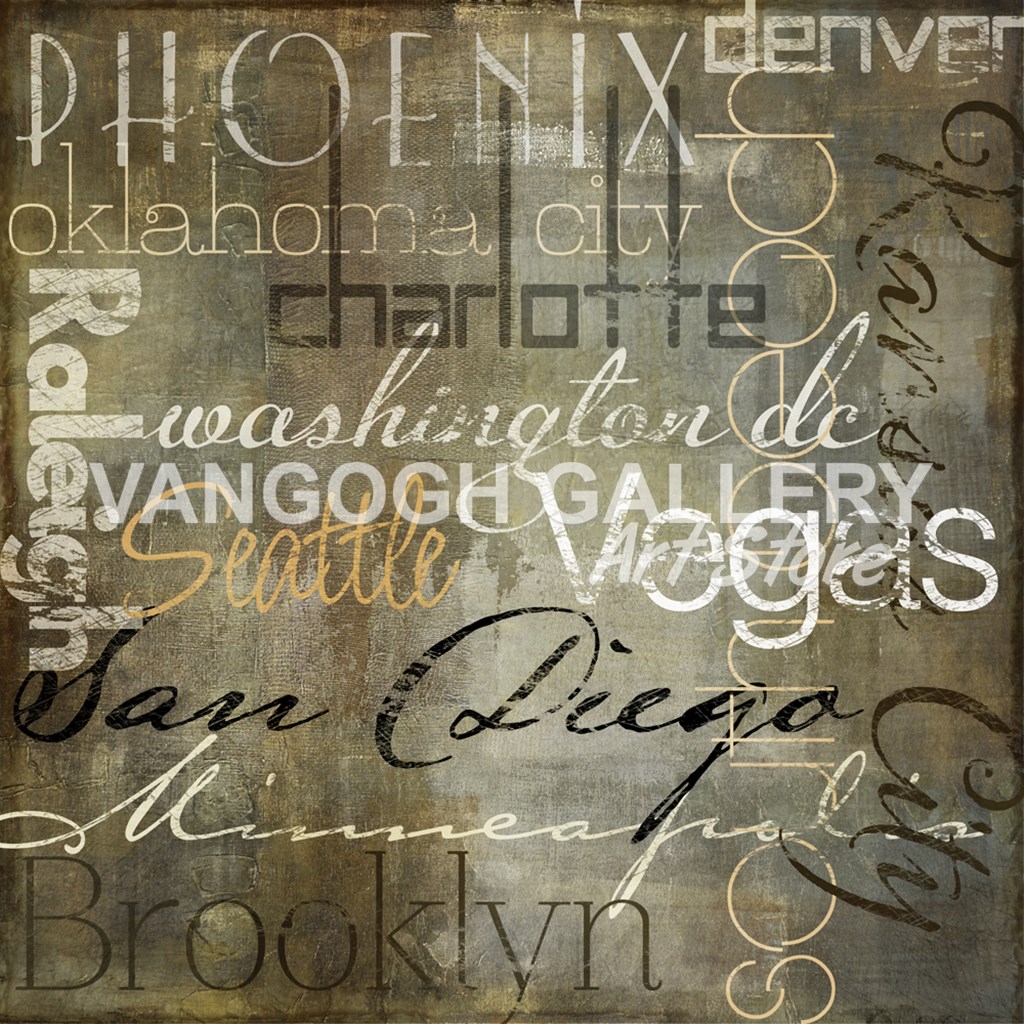 PHOENIX
denver
oklahoma city
charlotte
Raleigh
washington dc
VANGOGH GALLERY
Art Store
Seattle
Vegas
San Diego
Minneapolis
Brooklyn
south beach
Kansas City